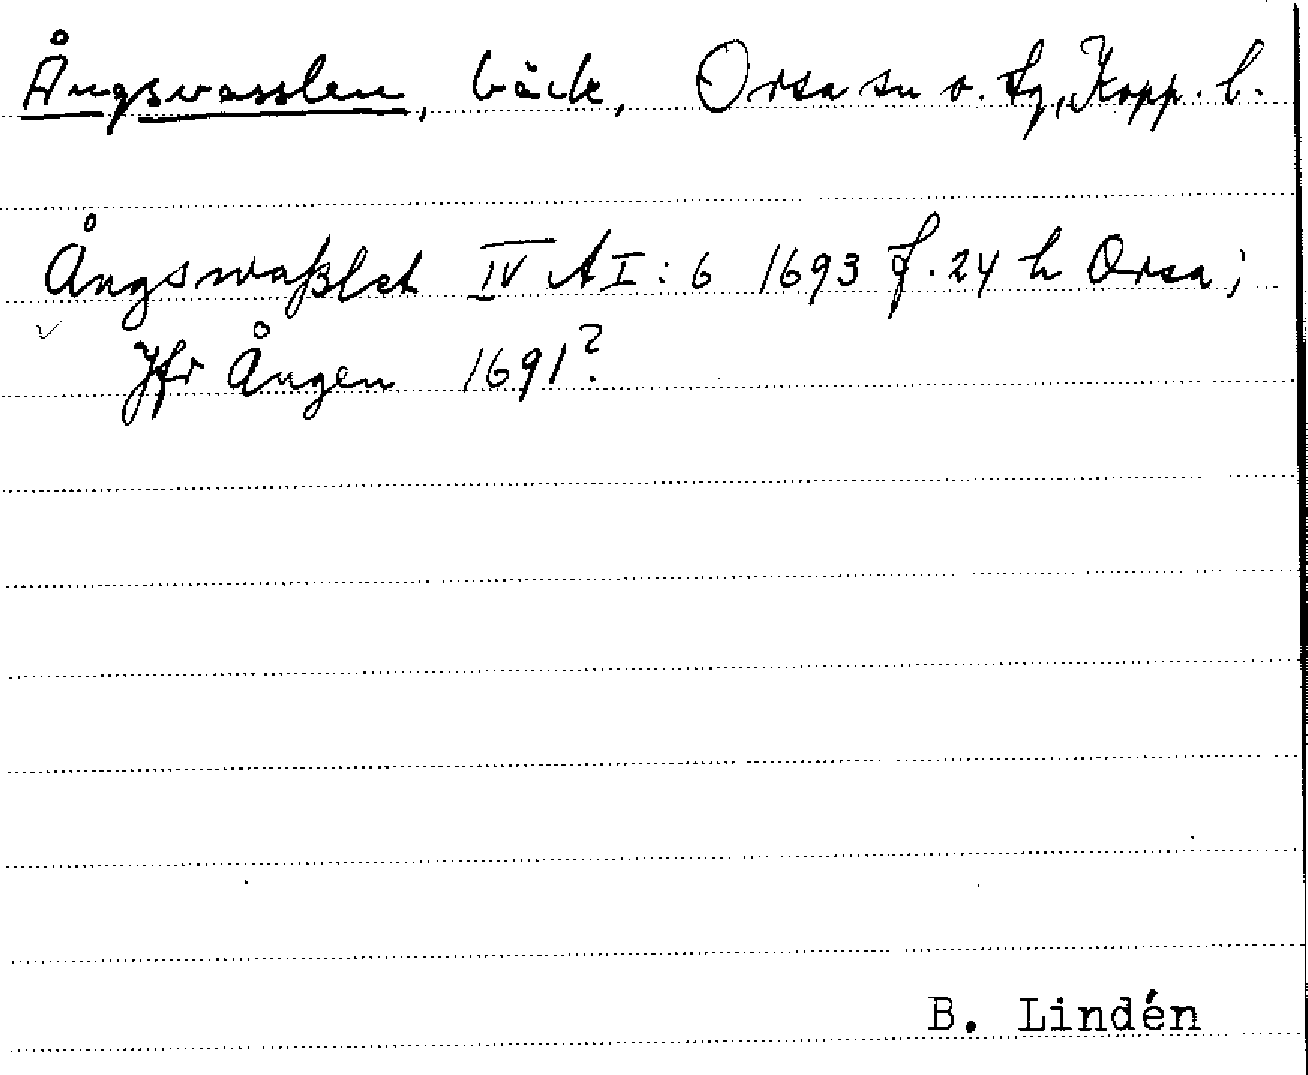 Ångsvasslen, bäck, Orsa sn o. tg, Kopp. l.
Ångswaßlet IV A I: 6 1693 f. 24 h Orsa;
Jfr Ången 1691?
B. Lindén